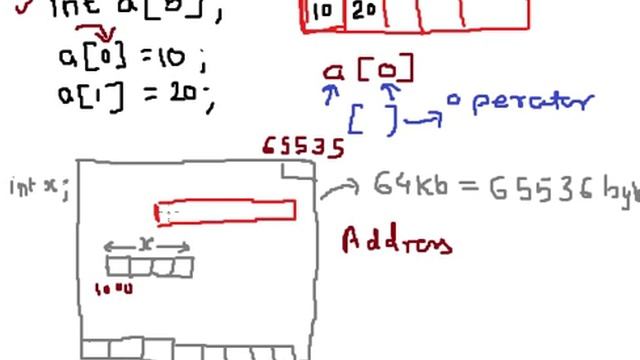 int a[5];
10 20
a[0] = 10;
a[1] = 20;
a[0]
[ ] → operator
65535
int x;
64Kb = 65536 by
Address
x
1000